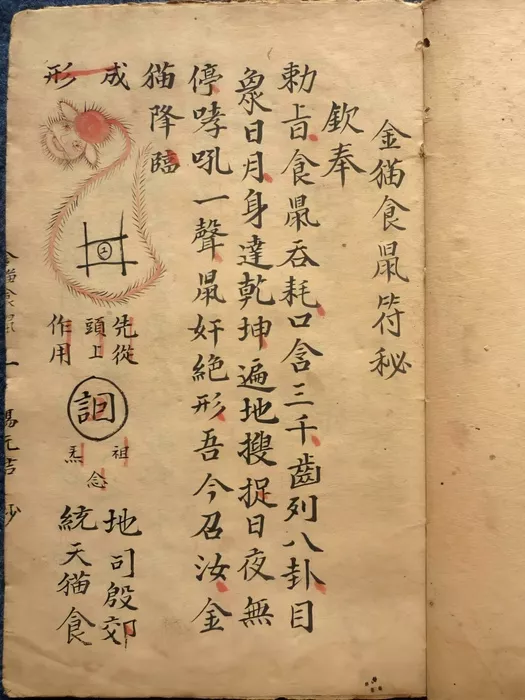 金猫食鼠符秘
欽奉
勅旨食鼠吞耗口含三千齒列八卦目
象日月身達乾坤遍地搜捉日夜無
停哮吼一聲鼠奸絕形吾今召汝金
猫降臨
成形
先從
頭上
作用
祖
念
炁
地司殷郊
統天猫食
金猫食鼠
一